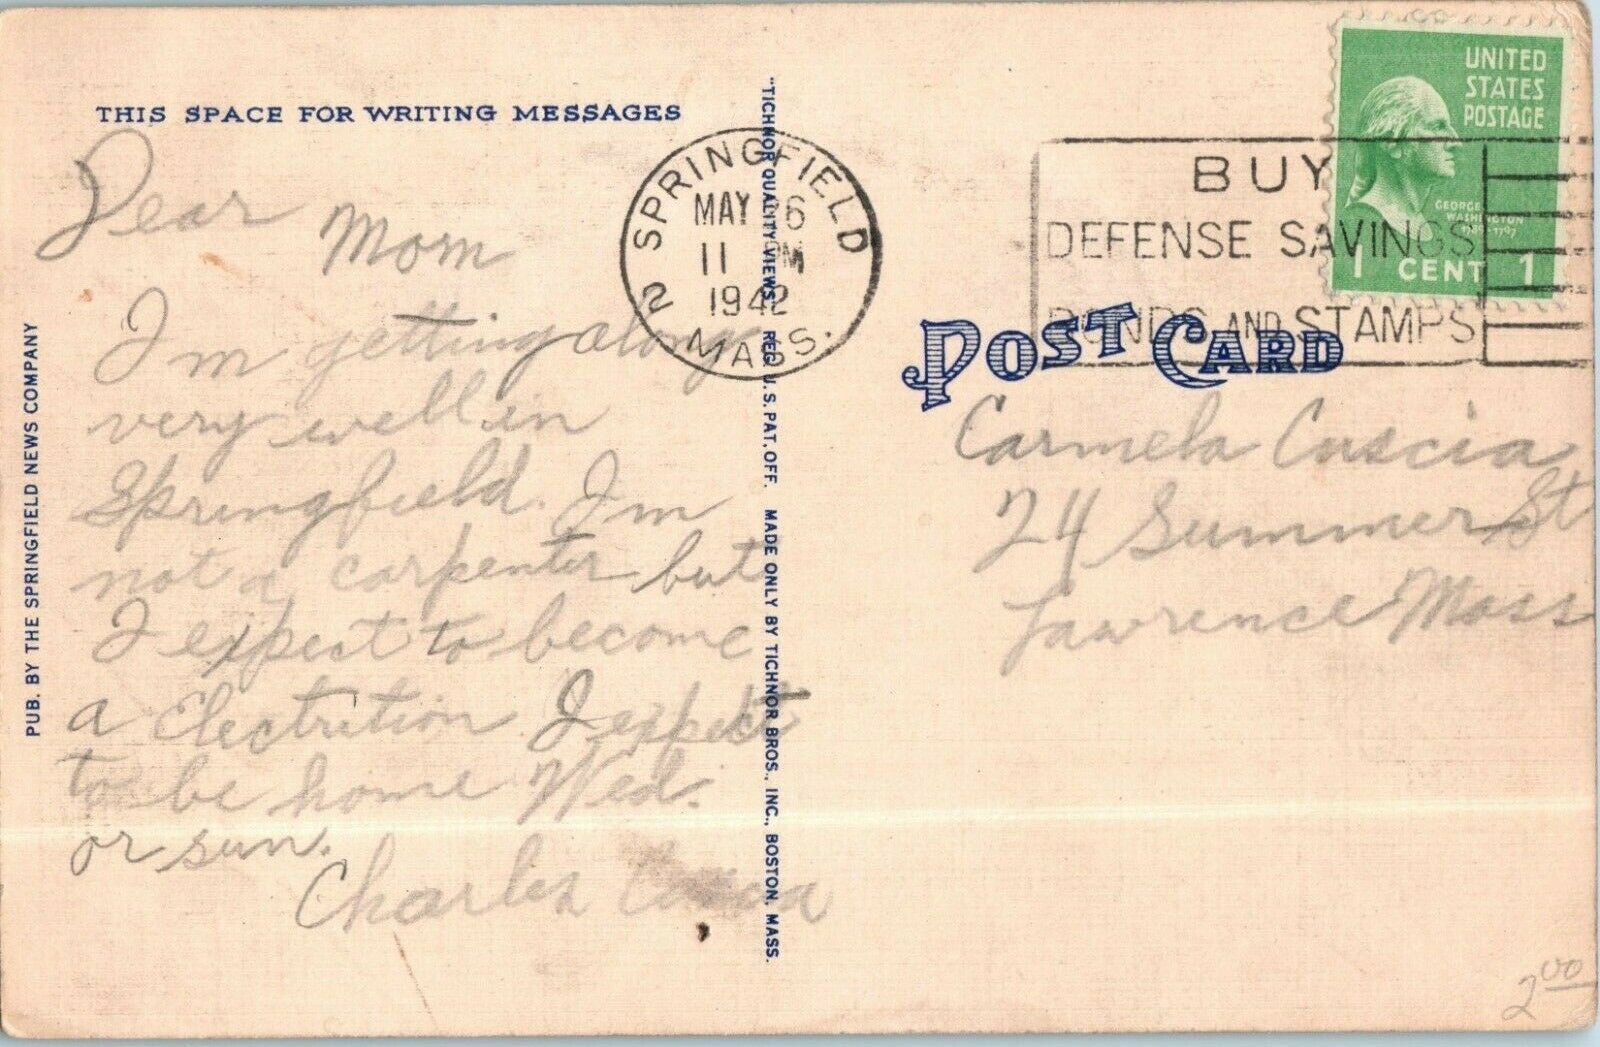 THIS SPACE FOR WRITING MESSAGES
Dear Mom
I'm getting along
very well in
Springfield. I'm
not a carpenter but
I expect to become
a Electrition I expect
to be home Wed.
or sun.
Charles
PUB. BY THE SPRINGFIELD NEWS COMPANY
"TICHNOR QUALITY VIEWS," REG. U.S. PAT. OFF. MADE ONLY BY TICHNOR BROS., INC., BOSTON, MASS.
SPRINGFIELD
MAY 6
11 PM
1942
2 MASS.
BUY
DEFENSE SAVINGS
BONDS AND STAMPS
UNITED
STATES
POSTAGE
GEORGE
WASHINGTON
1 CENT 1
POST CARD
Carmela Cuscia
24 Summer St
Lawrence Mass
2 00